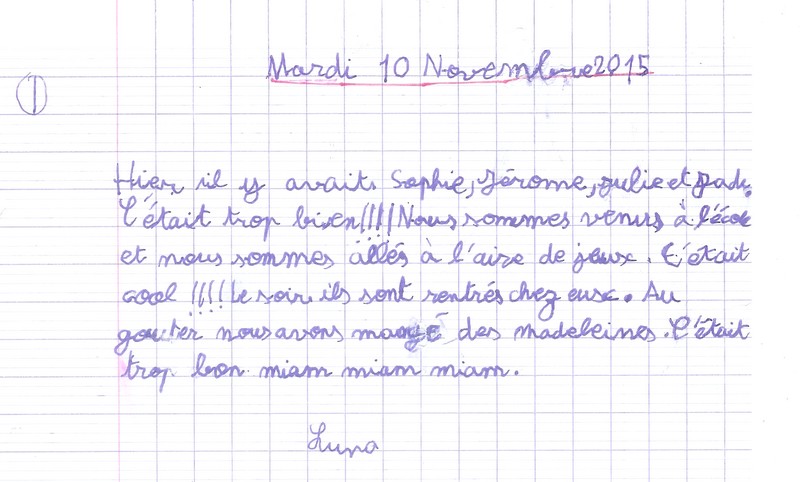 Mardi 10 Novembre 2015
1
Hier, il y avait Sophie, Jérome, Julie et
C'était trop bien!!!! Nous sommes venus à l'école
et nous sommes allés à l'aire de jeux. C'était
cool !!!! Le soir ils sont rentrés chez eux. Au
gouter nous avons mangé des madeleines. C'était
trop bon miam miam miam.
Luna